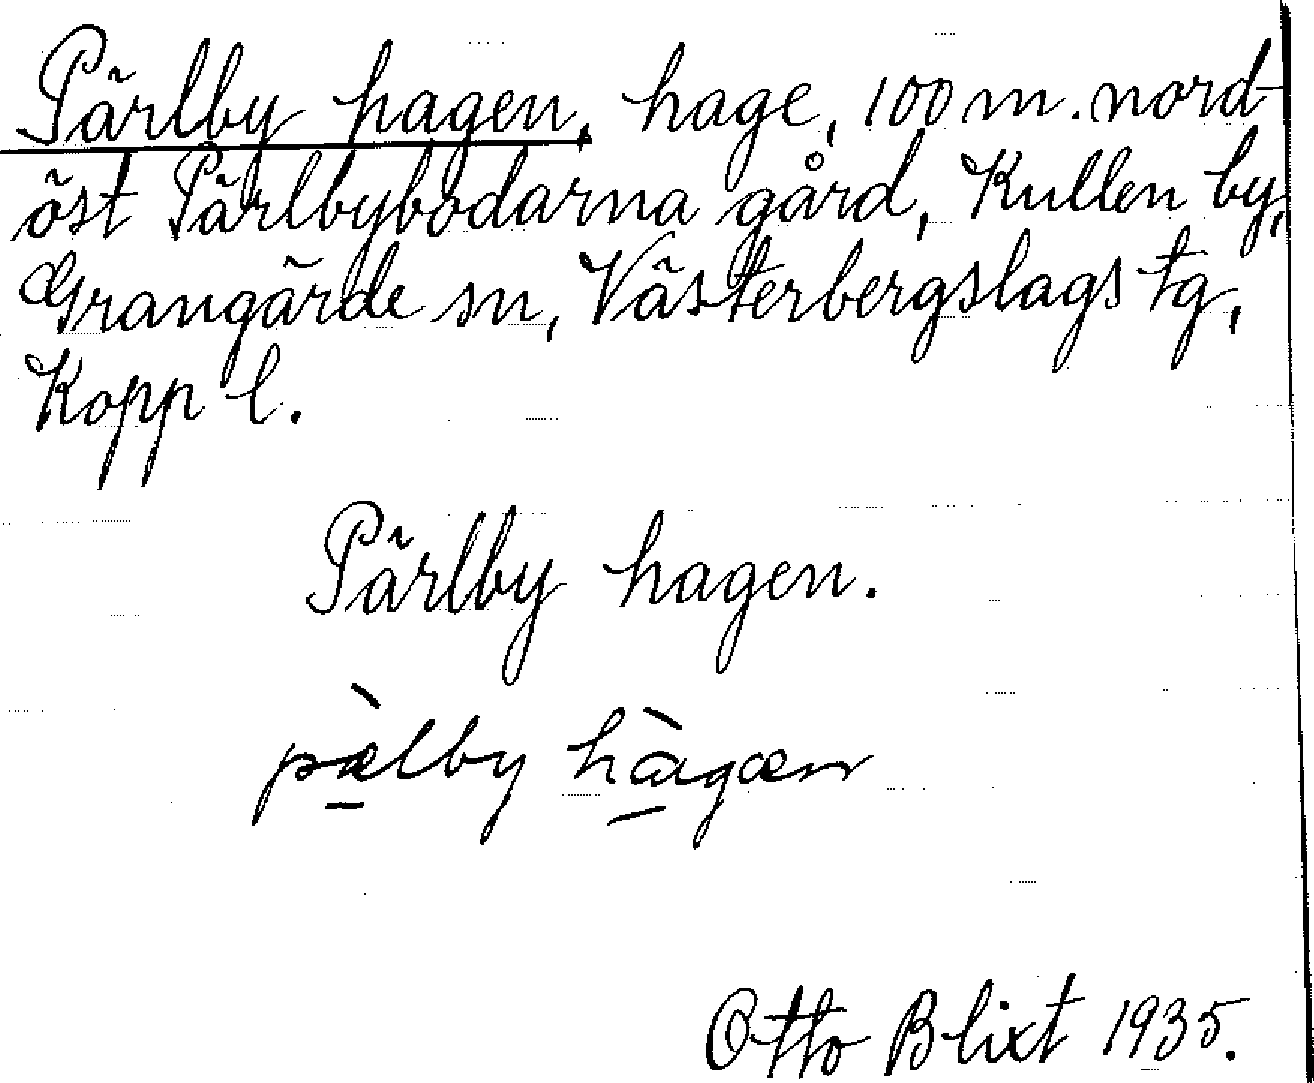 Pärlby hagen, hage, 100 m. nord-
öst Pärlbybodarna gård, Kullen by,
Grangärde sn, Västerbergslags tg,
Kopp l.
Pärlby hagen.
pæ̀lby hàgæn
Otto Blixt 1935.